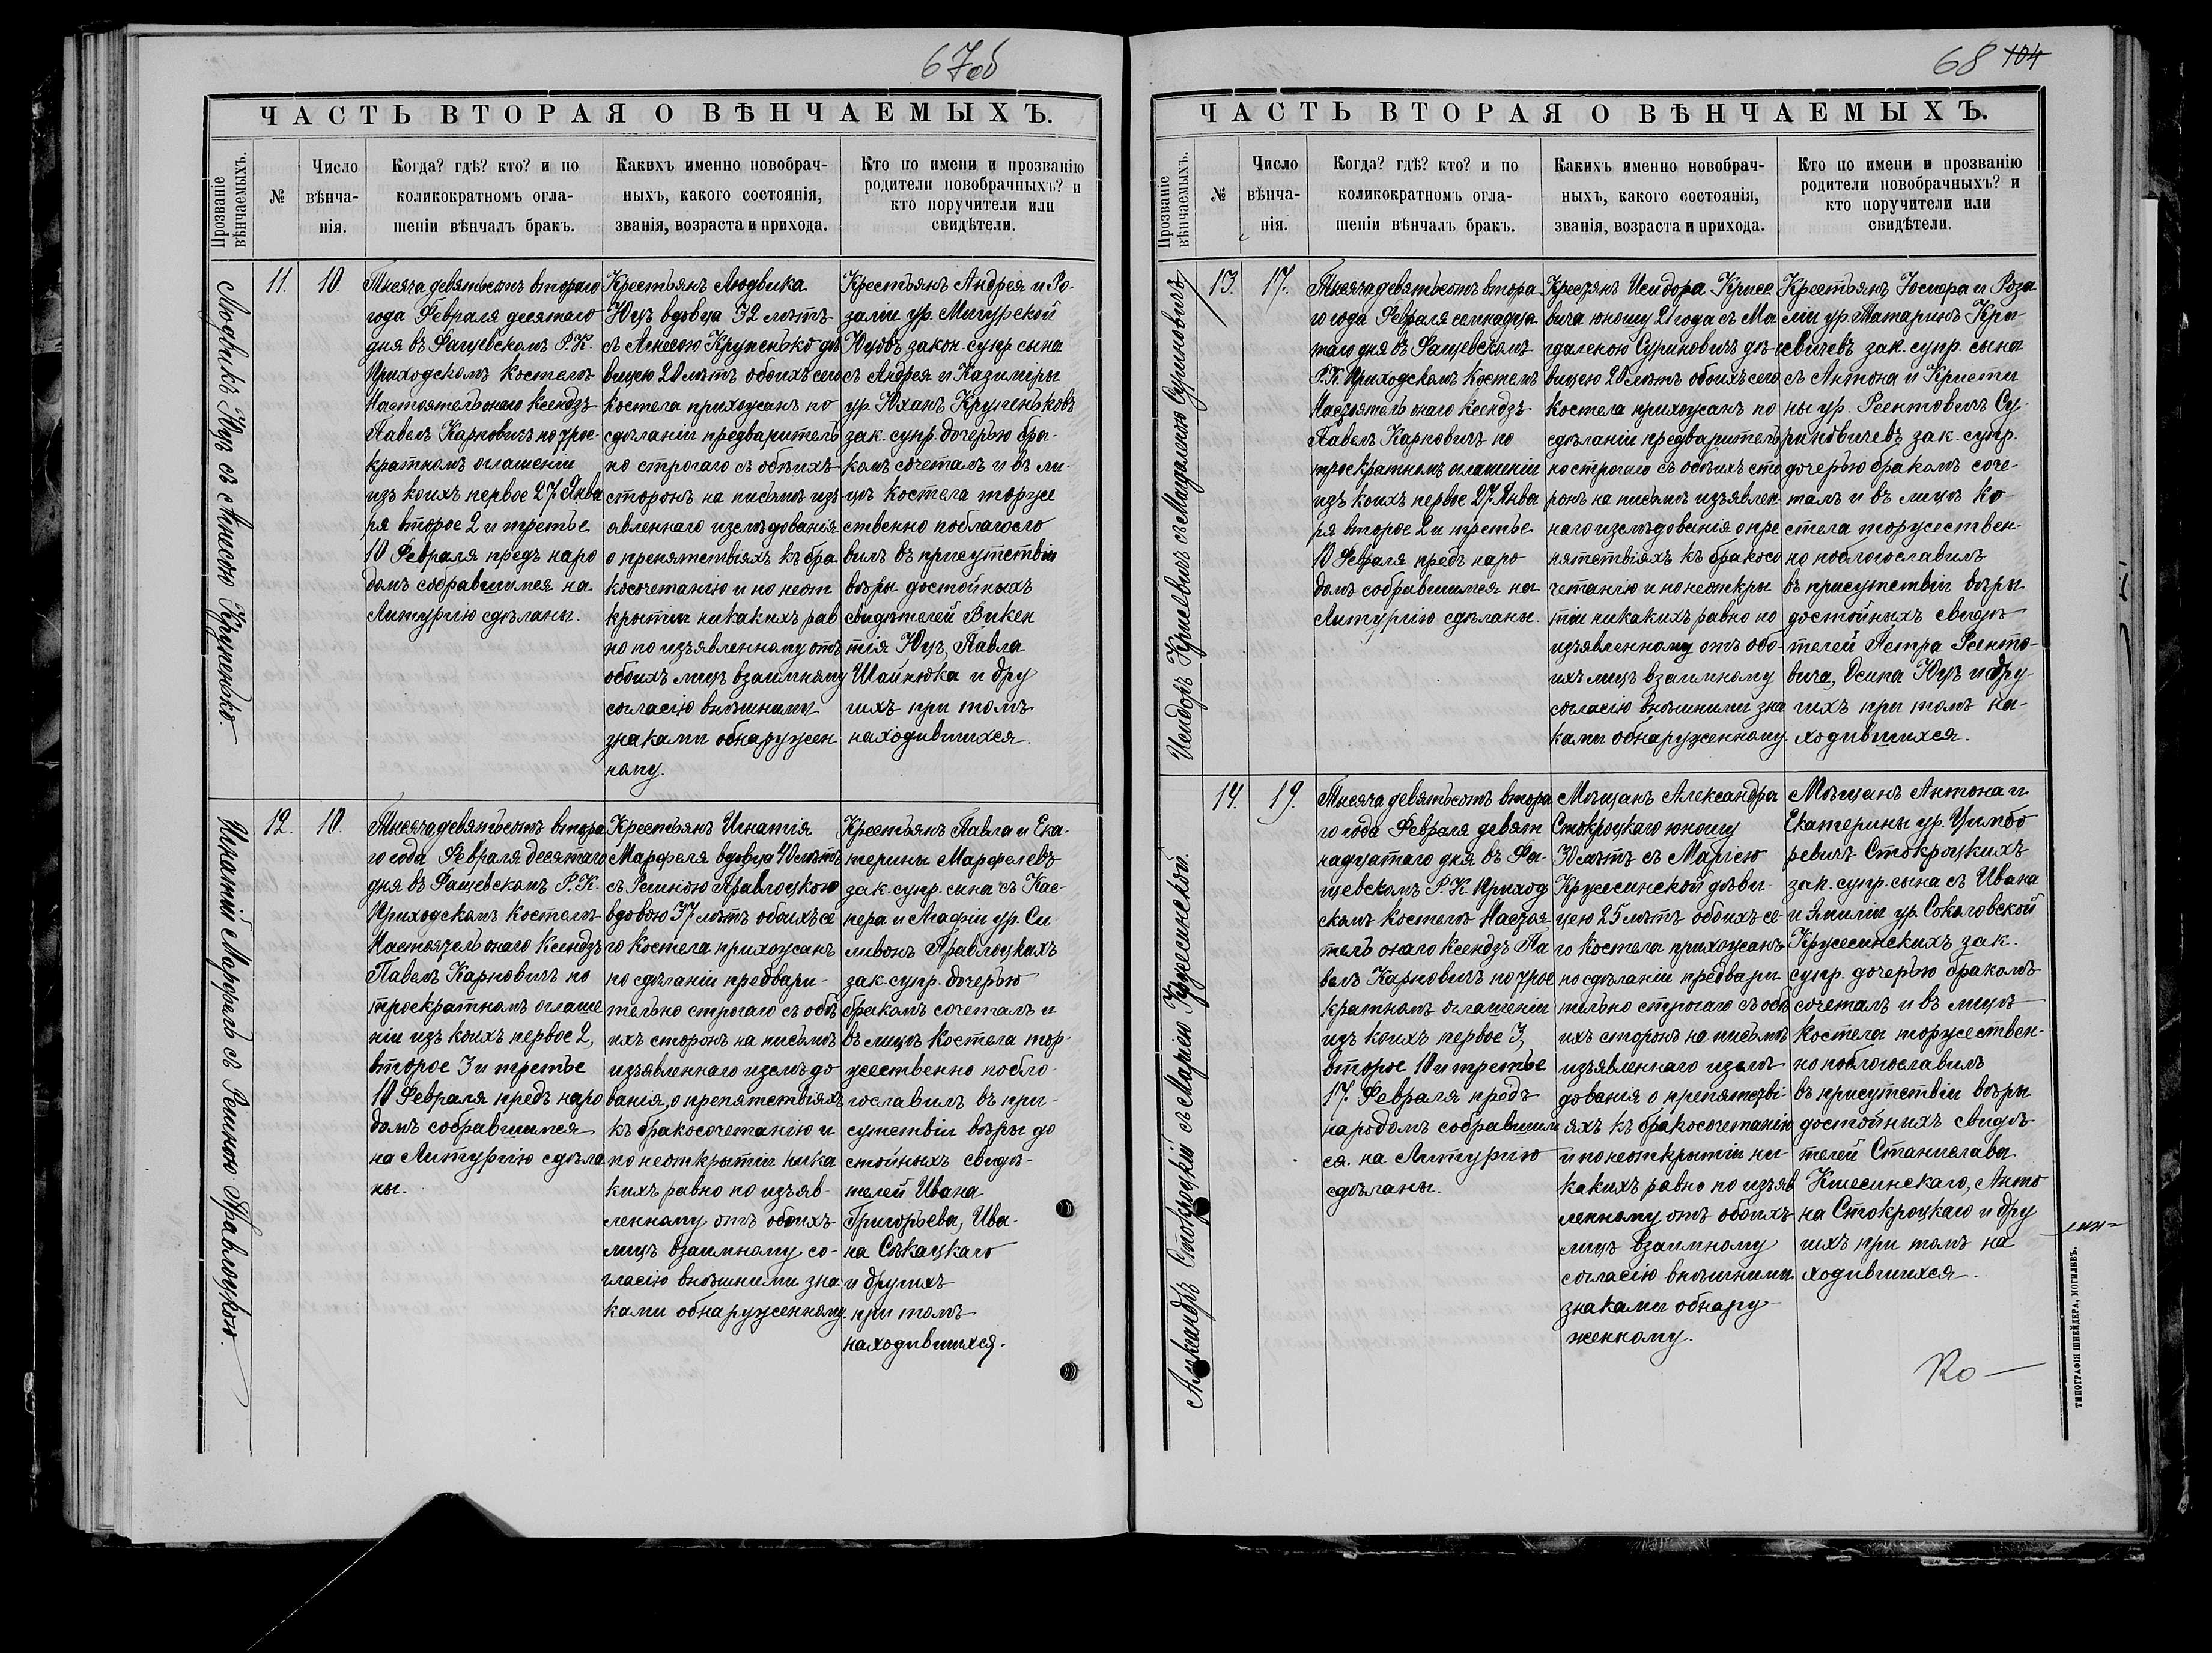 67об
ЧАСТЬ ВТОРАЯ О ВѢНЧАЕМЫХЪ.
Прозваніе вѣнчаемыхъ.
№
Число вѣнча-нія.
Когда? гдѣ? кто? и по
коликократномъ огла-
шеніи вѣнчалъ бракъ.
Какихъ именно новобрач-
ныхъ, какого состоянія,
званія, возраста и прихода.
Кто по имени и прозванію
родители новобрачныхъ? и
кто поручители или
свидѣтели.
Людвикъ Юцъ съ Анною Крупенько.
11.
10.
Тысяча девятьсотъ второго
года Февраля десятаго
дня въ Фащевскомъ Р.К.
Приходскомъ костелѣ
Настоятель онаго Ксендзъ
Павелъ Карповичъ по трое-
кратномъ оглашеніи
изъ коихъ первое 27 Янва
ря второе 2 и третье
10 Февраля предъ наро
домъ собравшимся на
Литургію сдѣланы.
Крестьянъ Людвика
Юцъ вдовца 32 лѣтъ
съ Крупенько дѣ
вицею 20 лѣтъ обоихъ сего
костела прихожанъ по
сдѣланіи предваритель
но строгаго съ обѣихъ
сторонъ на письмѣ изъ
явленнаго изслѣдованія
о препятствіяхъ къ бра
косочетанію и по неот
крытіи никакихъ рав
но по изъявленному отъ
обоихъ лицъ взаимному
согласію внѣшними
знаками обнаружен
ному.
Крестьянъ Андрея и Ро-
заліи ур. Мигурской
Юцовъ закон. супр. сына
съ Андрея и Казимиры
ур. Юханъ Крупеньковъ
зак. супр. дочерью бра-
комъ сочеталъ и въ ли-
цѣ костела торже
ственно поблагосло
вилъ въ присутствіи
вѣры достойныхъ
свидѣтелей Викен
тія Юцъ, Павла
Шайнюка и дру
гихъ при томъ
находившихся.
Игнатій Марфель съ Региною Правлоцкою.
12.
10.
Тысяча девятьсотъ второ
го года Февраля десятаго
дня въ Фащевскомъ Р.К.
Приходскомъ костелѣ
Настоятель онаго Ксендзъ
Павелъ Карповичъ по
троекратномъ оглаше
ніи изъ коихъ первое 2,
второе 3 и третье
10 Февраля предъ наро
домъ собравшимся
на Литургію сдѣла
ны.
Крестьянъ Игнатія
Марфеля вдовца 40 лѣтъ
съ Региною Правлоцкою
вдовою 37 лѣтъ обоихъ се
го костела прихожанъ
по сдѣланіи предвари-
тельно строгаго съ обѣ
ихъ сторонъ на письмѣ
изъявленнаго изслѣдо
ванія о препятствіяхъ
къ бракосочетанію и
по неоткрытіи ника
кихъ равно по изъяв-
ленному отъ обоихъ
лицъ взаимному со-
гласію внѣшними зна
ками обнаруженному.
Крестьянъ Павла и Ека-
терины Марфелевъ
зак. супр. сына съ Кас-
пера и Агафіи ур. Си
ливонъ Правлоцкихъ
зак. супр. дочерью
бракомъ сочеталъ и
въ лицѣ костела тор-
жественно побла-
гославилъ въ при-
сутствіи вѣры до
стойныхъ свидѣ-
телей Ивана
Григорьева, Ива-
на Сѣкацкаго
и другихъ
при томъ
находившихся.
68 104
ЧАСТЬ ВТОРАЯ О ВѢНЧАЕМЫХЪ.
Прозваніе вѣнчаемыхъ.
№
Число вѣнча-нія.
Когда? гдѣ? кто? и по
коликократномъ огла-
шеніи вѣнчалъ бракъ.
Какихъ именно новобрач-
ныхъ, какого состоянія,
званія, возраста и прихода.
Кто по имени и прозванію
родители новобрачныхъ? и
кто поручители или
свидѣтели.
Исидоръ Крисевичъ съ Магдаленою Суриновичъ
13.
17.
Тысяча девятьсотъ второ
го года Февраля семнадца
таго дня въ Фащевскомъ
Р.К. Приходскомъ костелѣ
Настоятель онаго Ксендзъ
Павелъ Карповичъ по
троекратномъ оглашеніи
изъ коихъ первое 27 Янва
ря второе 2 и третье
10 Февраля предъ наро
домъ собравшимся на
Литургію сдѣланы.
Крестьянъ Исидора Крисе
вича юношу 21 года съ Ма
гдаленою Суриновичъ дѣ-
вицею 20 лѣтъ обоихъ сего
костела прихожанъ по
сдѣланіи предваритель
но строгаго съ обѣихъ сто
ронъ на письмѣ изъявлен
наго изслѣдованія о пре
пятствіяхъ къ бракосо
четанію и по неоткры
тіи никакихъ равно по
изъявленному отъ обо-
ихъ лицъ взаимному
согласію внѣшними зна
ками обнаруженному.
Крестьянъ Іосифа и Роза
ліи ур. Татаринъ Кри-
севичевъ зак. супр. сына
съ Антона и Кристи
ны ур. Рентовичъ Су-
риновичевъ зак. супр.
дочерью бракомъ соче-
талъ и въ лицѣ ко-
стела торжествен-
но поблогославилъ
въ присутствіи вѣры
достойныхъ свидѣ
телей Петра Ренто-
вича, Осипа Юцъ и дру-
гихъ при томъ на-
ходившихся.
Александръ Стокроцкій съ Маріею Кржесинской.
14.
19.
Тысяча девятьсотъ второ
го года Февраля девят
надцатаго дня въ Фа-
щевскомъ Р.К. Приход
скомъ костелѣ Настоя
тель онаго Ксендзъ Па
велъ Карповичъ по трое
кратномъ оглашеніи
изъ коихъ первое 3,
второе 10 и третье
17 Февраля предъ
народомъ собравшим
ся на Литургію
сдѣланы.
Мѣщанъ Александра
Стокроцкаго юношу
30 лѣтъ съ Маріею
Кржесинской дѣви-
цею 25 лѣтъ обоихъ се-
го костела прихожанъ
по сдѣланіи предвари
тельно строгаго съ обѣ
ихъ сторонъ на письмѣ
изъявленнаго изслѣ
дованія о препятстві-
яхъ къ бракосочетанію
и по неоткрытіи ни-
какихъ равно по изъяв
ленному отъ обоихъ
лицъ взаимному
согласію внѣшними
знаками обнару-
женному.
Мѣщанъ Антона и
Екатерины ур. Цимбо
ревичъ Стокроцкихъ
зак. супр. сына съ Ивана
и Эмиліи ур. Соколовской
Кржесинскихъ зак.
супр. дочерью бракомъ
сочеталъ и въ лицѣ
костела торжествен-
но поблогославилъ
въ присутствіи вѣры
достойныхъ свидѣ
телей Станислава
Кшесинскаго, Анто
на Стокроцкаго и дру
гихъ при томъ на
ходившихся.
Ко—
ТИПОГРАФІЯ ШНЕЙДЕРА, МОГИЛЕВЪ.